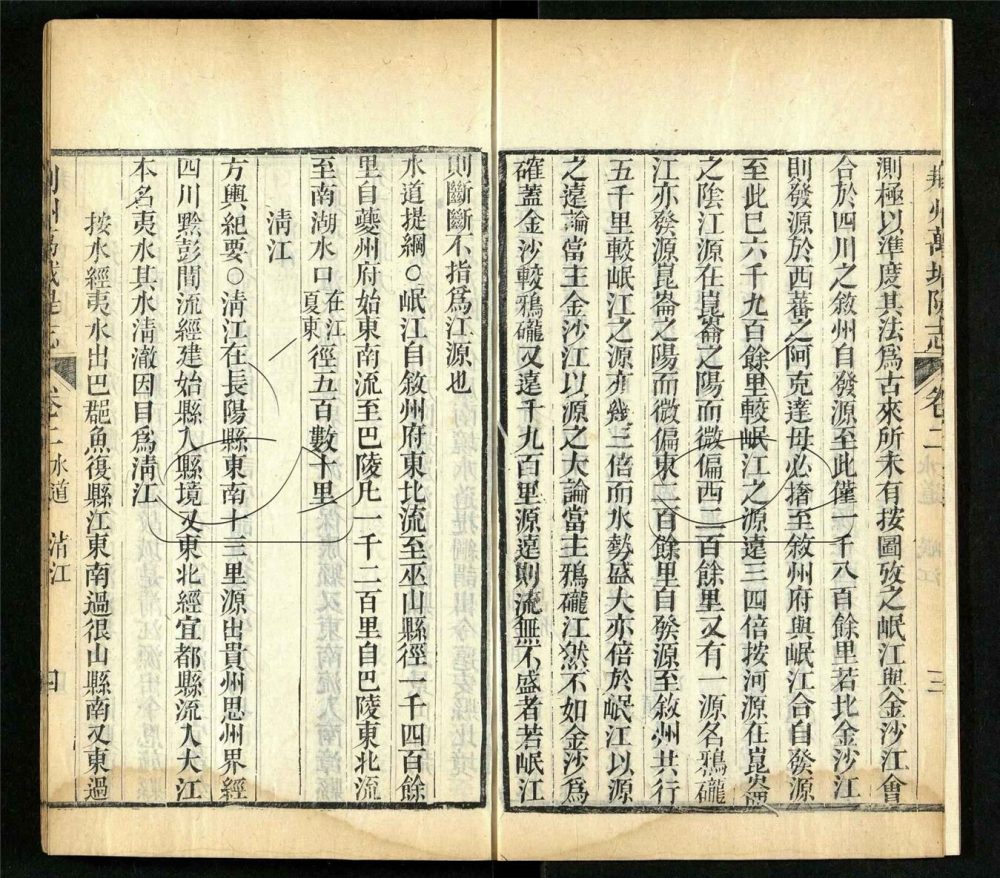 荊州萬城隄志 卷二 三
測極以準度其法爲古來所未有按圖攷之岷江與金沙江會
合於四川之敘州自發源至此僅一千八百餘里若北金沙江
則發源於西蕃之阿克達母必拷至敘州府與岷江合自發源
至此已六千九百餘里較岷江之源遠三四倍按河源在崑崙
之陰江源在崑崙之陽而微偏西二百餘里又有一源名鴉礲
江亦發源崑崙之陽而微偏東二百餘里自發源至敘州共行
五千里較岷江之源亦幾三倍而水勢盛大亦倍於岷江以源
之遠論當主金沙江以源之大論當主鴉礲江然不如金沙爲
確蓋金沙較鴉礲又遠千九百里源遠則流無不盛者若岷江
則斷斷不指爲江源也
水道提綱○岷江自敘州府東北流至巫山縣徑一千四百餘
里自夔州府始東南流至巴陵凡一千二百里自巴陵東北流
至南湖水口在江夏東徑五百數十里
清江
方輿紀要○清江在長陽縣東南十三里源出貴州思州界經
四川黔彭間流經建始縣入縣境又東北經宜都縣流入大江
本名夷水其水清澈因目爲清江
按水經夷水出巴郡魚復縣江東南過佷山縣南又東過
荊州萬城隄志 卷二 水道 清江 四